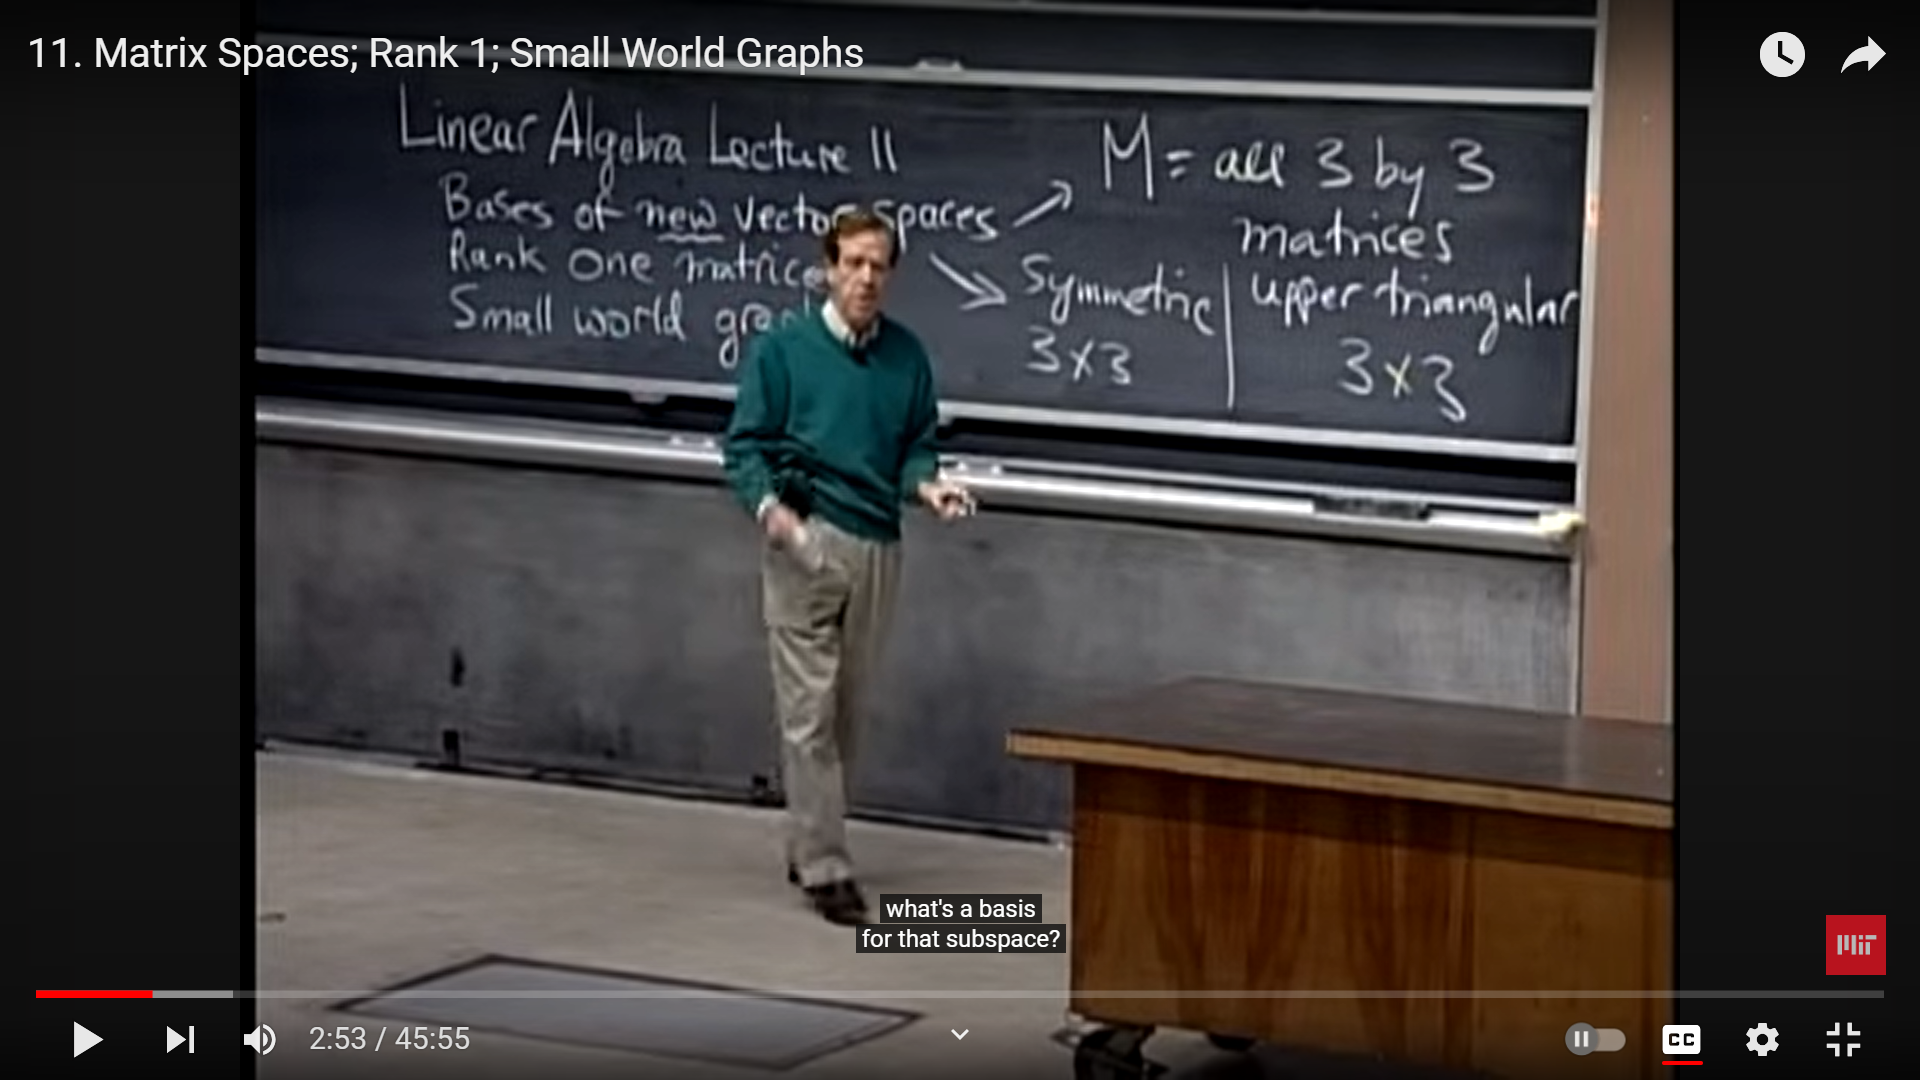 11. Matrix Spaces; Rank 1; Small World Graphs
Linear Algebra Lecture 11
Bases of new vector spaces
Rank one matrice
Small world gra
M = all 3 by 3
matrices
Symmetric
3x3
upper triangular
3x3
what's a basis
for that subspace?
MIT
2:53 / 45:55
CC